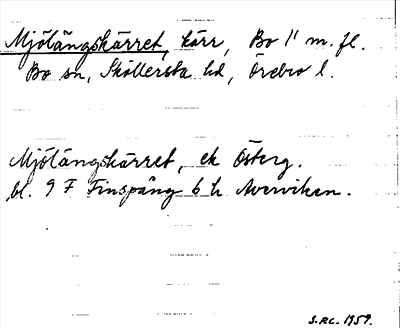 Mjölängskärret, kärr, Bo 1¹¹ m. fl.
Bo sn, Sköllersta hd, Örebro l.
Mjölängskärret, ek Österg.
bl. 9 F Finspång 6 h Averviken.
S.RC. 1959.